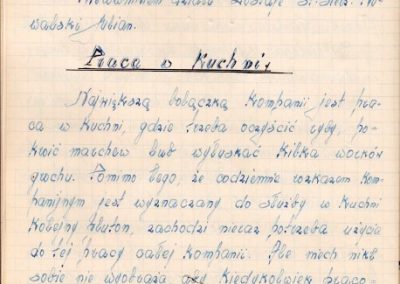 działu zostaje st. sierż. No-
walski Julian.
Praca w Kuchni
Największą bolączką Kompanii jest pra-
ca w Kuchni, gdzie trzeba oczyścić ryby, po-
kroić marchew lub wyłuskać kilka worków
grochu. Pomimo tego, że codziennie rozkazem Kom-
panijnym jest wyznaczany do służby w Kuchni
Kolejny pluton, zachodzi nieraz potrzeba użycia
do tej pracy całej Kompanii. Ale niech nikt
sobie nie wyobraża aby Kiedykolwiek praco-